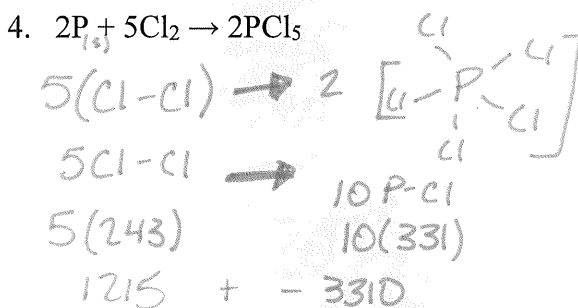 4. 2P(s) + 5Cl2 → 2PCl5
5(Cl-Cl) → 2 [Cl-P Cl Cl Cl Cl]
5Cl-Cl → 10 P-Cl
5(243) 10(331)
1215 + - 3310